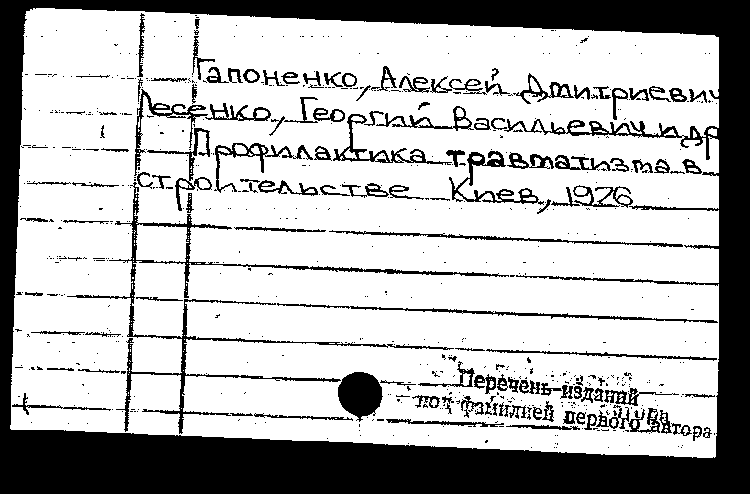 Гапоненко, Алексей Дмитриевич
Лесенко, Георгий Васильевич и др
Профилактика травматизма в
строительстве Киев, 1976
Перечень изданий
под фамилией первого автора